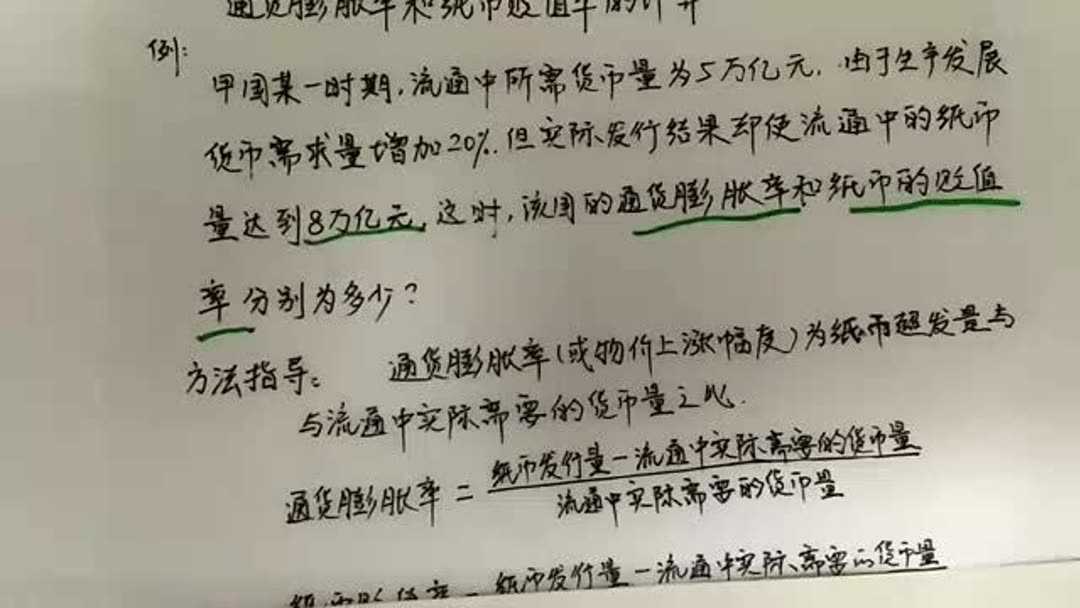 通货膨胀率和纸币贬值率的计算
例:
甲国某一时期,流通中所需货币量为5万亿元.由于生产发展
货币需求量增加20%.但实际发行结果却使流通中的纸币
量达到8万亿元,这时,该国的通货膨胀率和纸币的贬值
率分别为多少?
方法指导: 通货膨胀率(或物价上涨幅度)为纸币超发量与
与流通中实际需要的货币量之比.
通货膨胀率=纸币发行量-流通中实际需要的货币量
流通中实际需要的货币量
纸币贬值率=纸币发行量-流通中实际需要的货币量